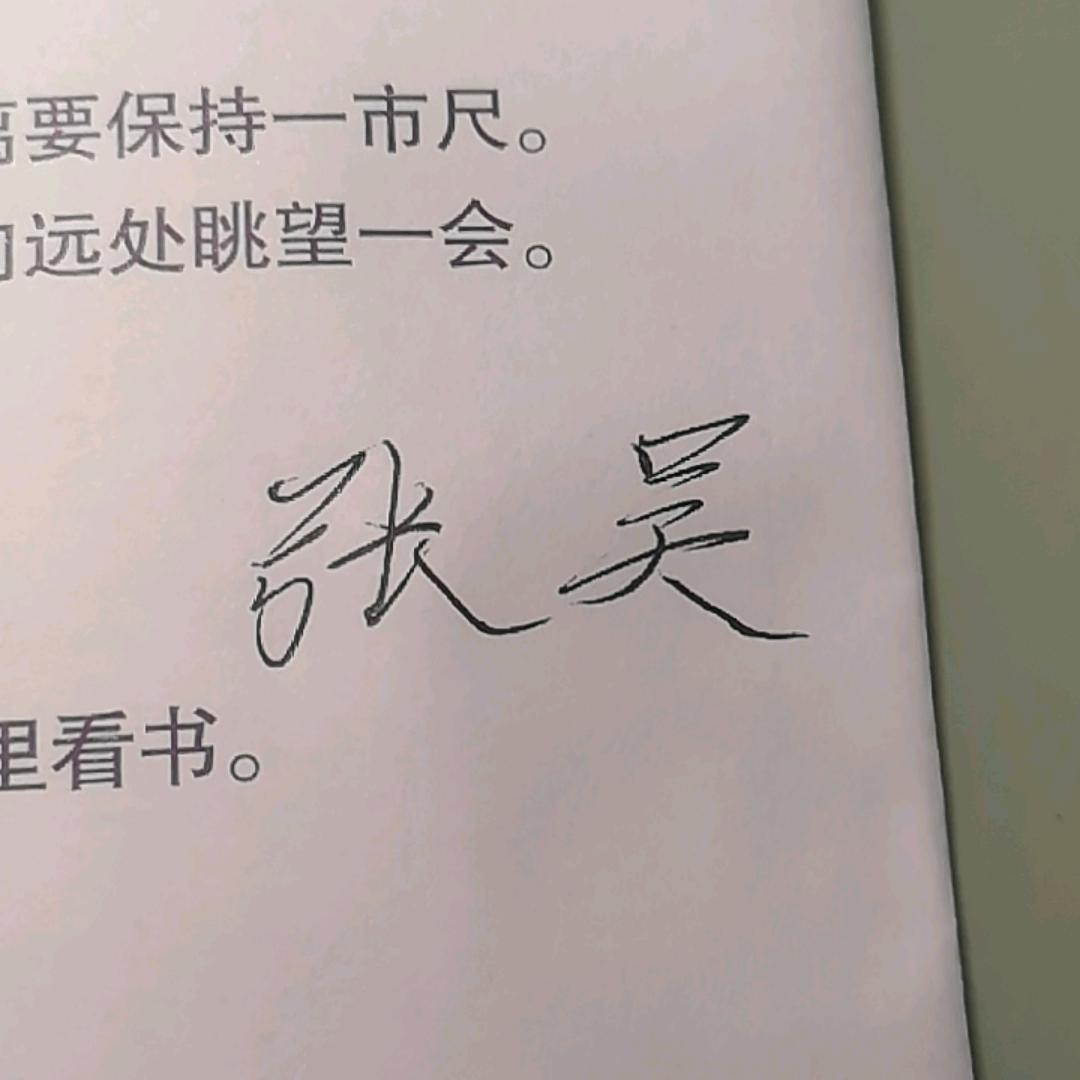 离要保持一市尺。
向远处眺望一会。
张吴
里看书。